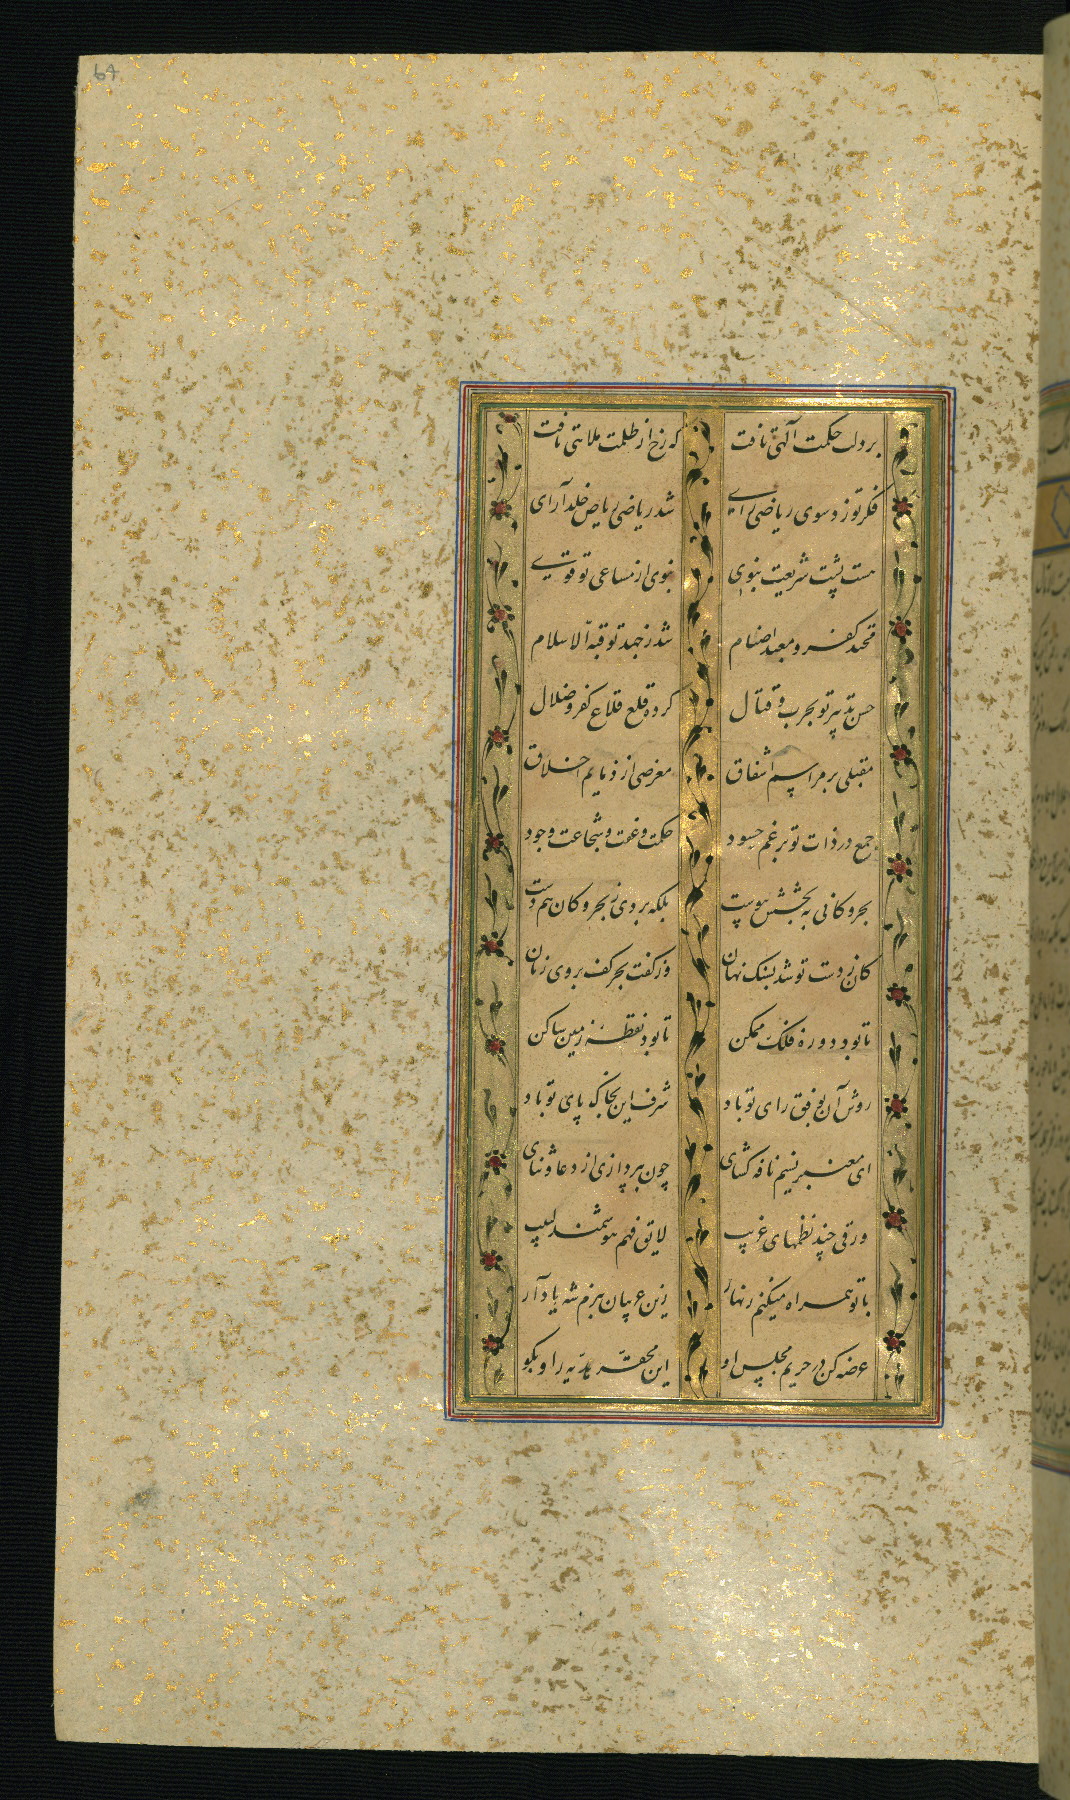 64
بر دلت حکمت آلهی تافت که رخ از ظلمت ملاهی تافت
فکر تو زد سوی ریاضی رای شد ریاضی ریاض خلد آرای
هست پشت شریعت نبوی نبوی از مساعی تو قوی
معبد اصنام شد ز جهد تو قبة الاسلام
حسن تدبیر تو بحرب و قتال کرده قلع قلاع کفر و ضلال
مقبلی بر مراسم اشفاق معرضی از ذمایم اخلاق
جمع در ذات تو برغم حسود حکمت و عفت و شجاعت و جود
بحر و کانی به بخشش پیوست بلکه بردی ز بحر و کان هم دست
کان ز دست تو شد بسنگ نهان وز کفت بحر کف بروی زنان
تا بود دوره فلک ممکن تا بود نقطه زمین ساکن
روش آن بوفق رای تو باد شرف این بخاک پای تو باد
ای معنبر نسیم نافه کشای چون بپردازی از دعا و ثنای
ورقی چند نظمهای غریب لایق فهم هوشمند لبیب
با تو همراه میکنم زنهار زین غریبان ببزم شه یاد آر
عرضه کن در حریم مجلس او این محقر هدیه را و بگو